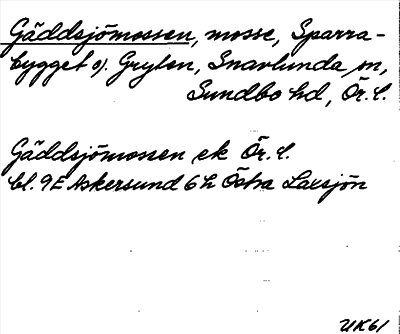 Gäddsjömossen, mosse, Sparra-
bygget o. Gryten, Snavlunda sn,
Sundbo hd, Ör. l.
Gäddsjömossen ek Ör. l.
bl. 9E Askersund 6h Östra Laxsjön
UK61